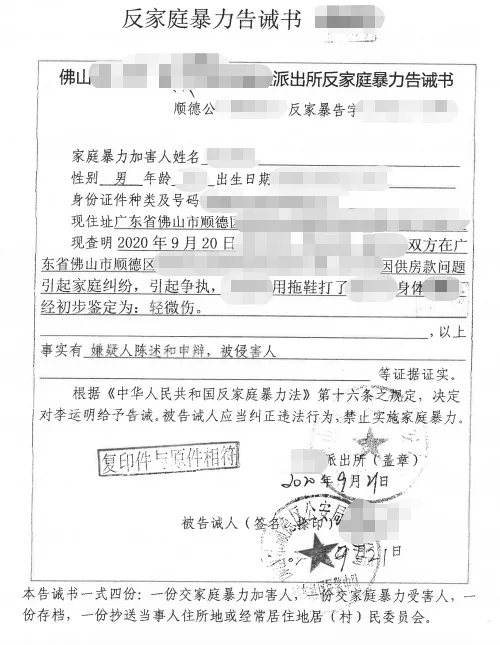 反家庭暴力告诫书
佛山 派出所反家庭暴力告诫书
顺德公 反家暴告字
家庭暴力加害人姓名
性别 男 年龄 出生日期
身份证件种类及号码
现住址广东省佛山市顺德区
现查明 2020 年 9 月 20 日 双方在广
东省佛山市顺德区 因供房款问题
引起家庭纠纷，引起争执， 用拖鞋打了 身体
经初步鉴定为：轻微伤。
，以上
事实有 嫌疑人陈述和申辩，被侵害人
等证据证实。
根据《中华人民共和国反家庭暴力法》第十六条之规定，决定
对李运明给予告诫。被告诫人应当纠正违法行为，禁止实施家庭暴力。
复印件与原件相符
派出所（盖章）
2020 年 9 月 21 日
被告诫人（签名、捺印）
9 月 21 日
本告诫书一式四份：一份交家庭暴力加害人，一份交家庭暴力受害人，一
份存档，一份抄送当事人住所地或经常居住地居（村）民委员会。